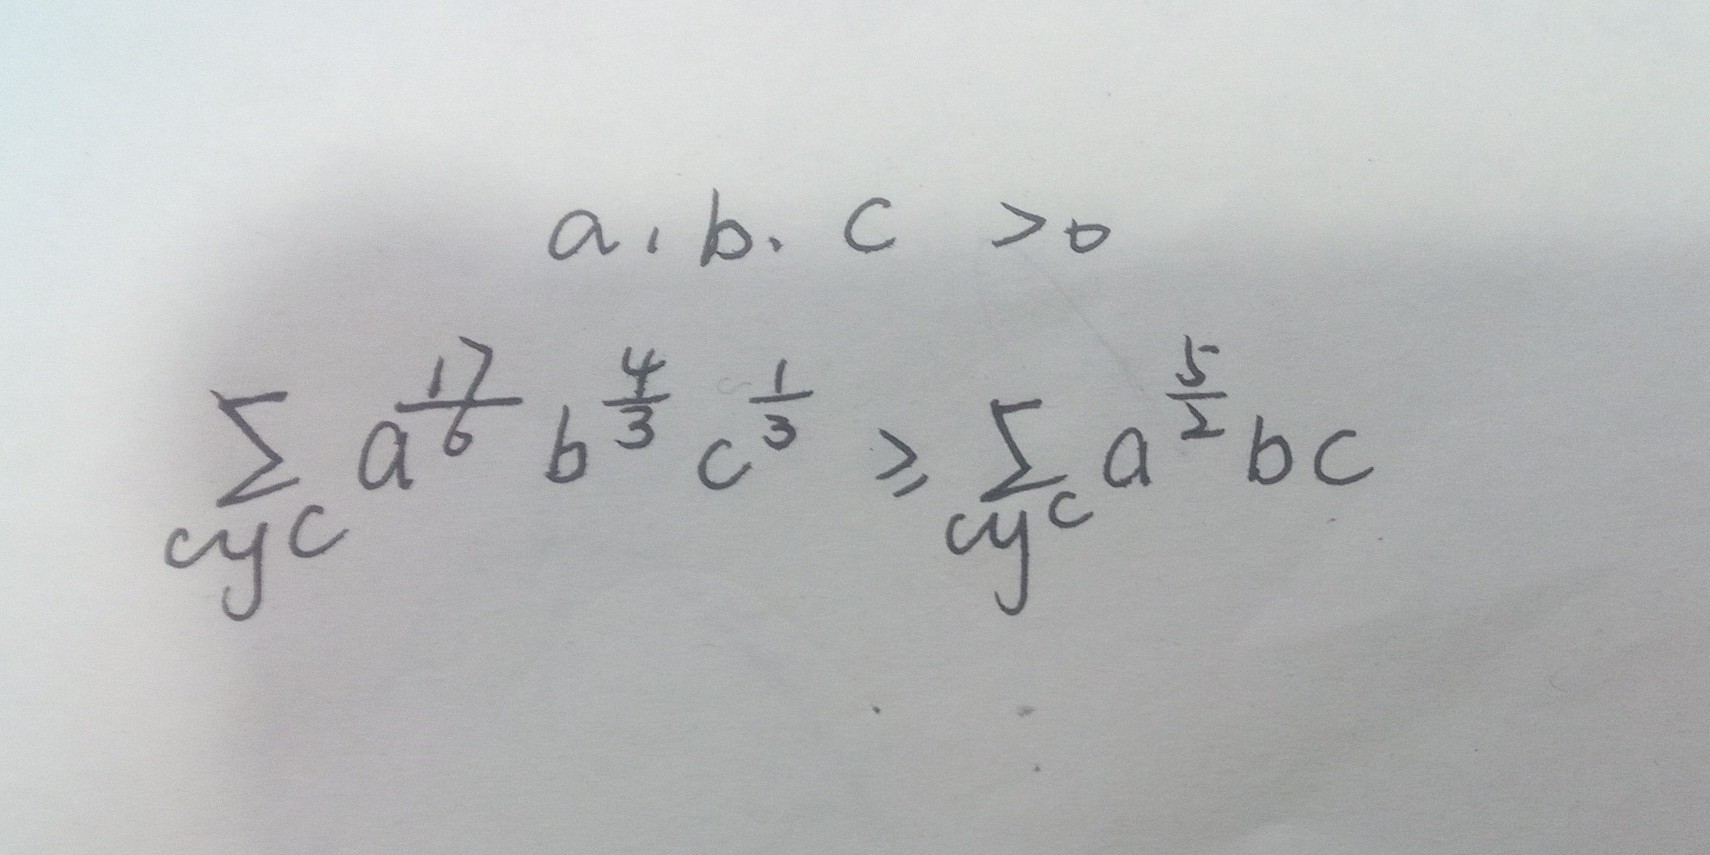 a, b, c > 0
∑_{cyc} a^{17/6} b^{4/3} c^{1/3} ≥ ∑_{cyc} a^{5/2} bc